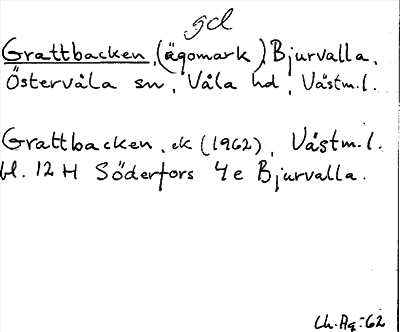 gd
Grattbacken, (ägomark), Bjurvalla,
Östervåla sn, Våla hd, Västm.l.
Grattbacken, ek (1962), Västm.l.
bl. 12 H Söderfors 4 e Bjurvalla.
Ch.Ag-62